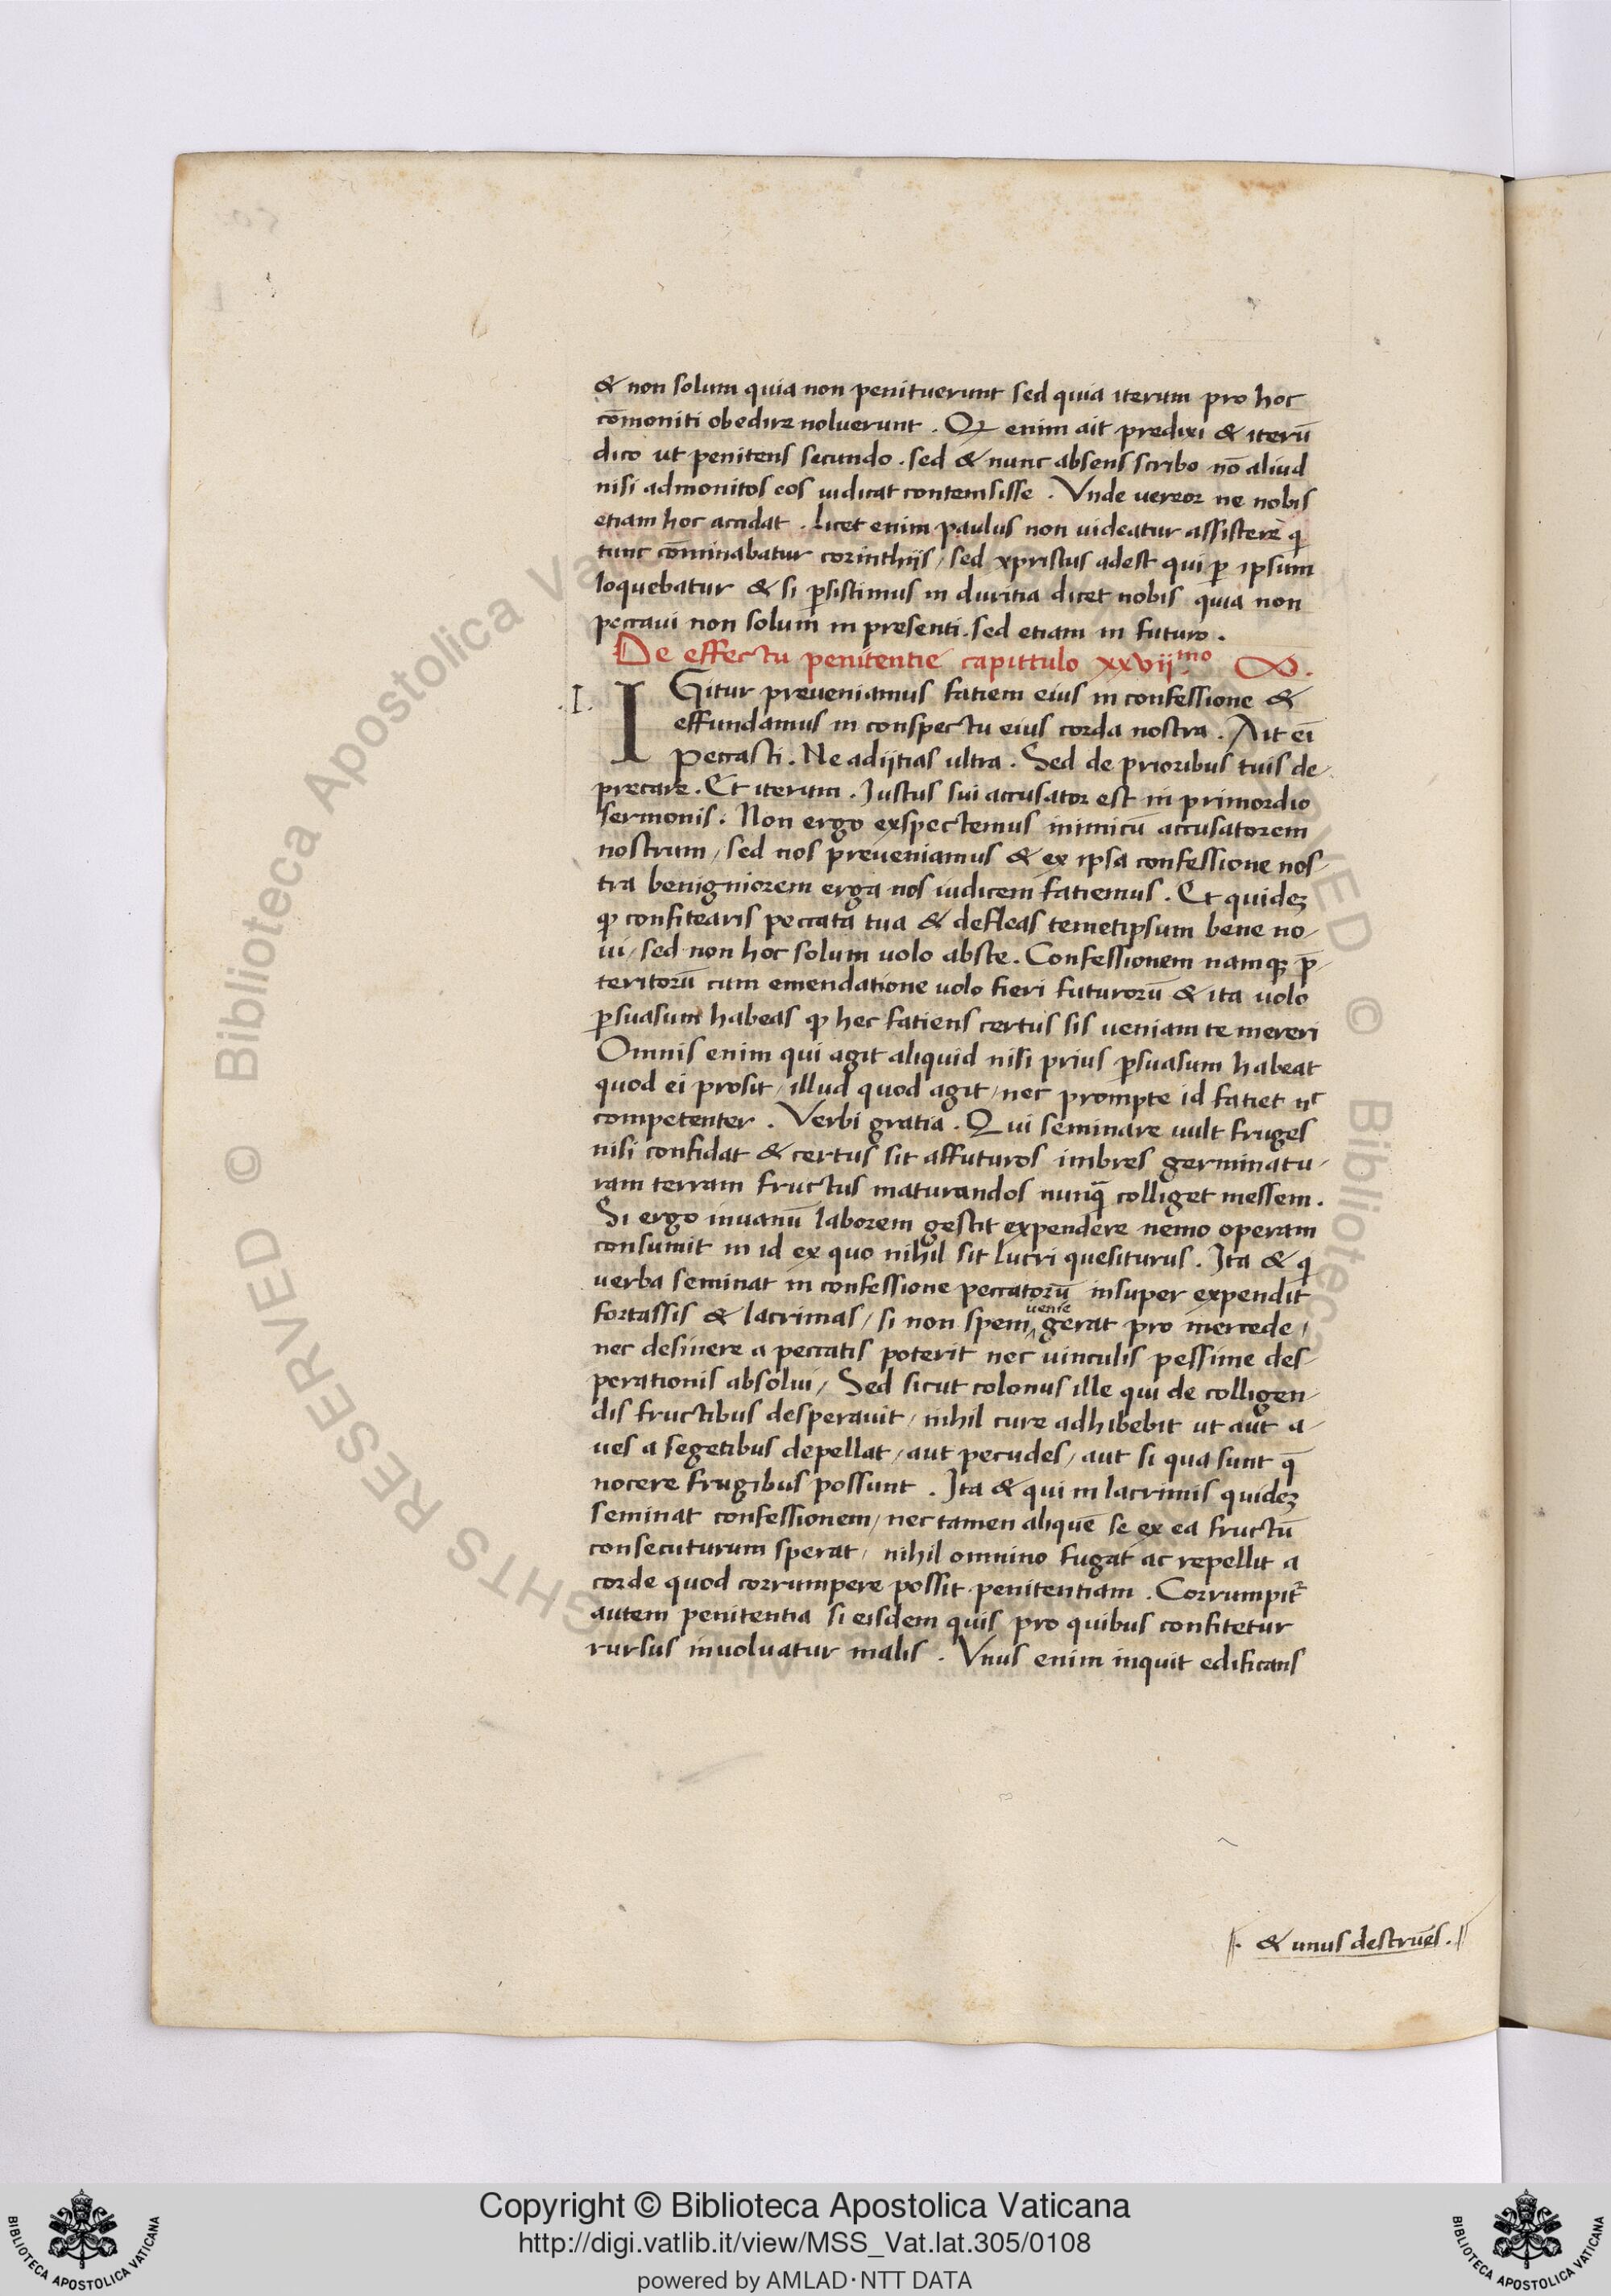 & non solum quia non penituerunt sed quia iterum pro hoc
cōmoniti obedire noluerunt . Qꝫ enim ait predixi & iterū
dico ut penitens secundo . sed & nunc absens scribo nō aliud
nisi admonitos eos iudicat contemsisse . Vnde uereor ne nobis
etiam hoc accidat . licet enim paulus non uideatur assistere q
tunc cōminabatur corinthijs / sed xpristus adest qui ꝑ ipsum
loquebatur & si ꝑsistimus in duritia dicet nobis quia non
peccaui non solum in presenti . sed etiam in futuro .
De effectu penitentie capittulo xxvij.mo
.I. IGitur preueniamus fatiem eius in confessione &
effundamus in conspectu eius corda nostra . Ait eī
peccasti . Ne adijtias ultra . Sed de prioribus tuis de-
precare . Et iterum . Justus sui accusator est in primordio
sermonis . Non ergo exspectemus inimicū accusatorem
nostrum / sed nos preueniamus & ex ipsa confessione nos-
tra benigniorem erga nos iudicem fatiemus . Et quideꝫ
ꝙ confitearis peccata tua & defleas temetipsum bene no-
ui / sed non hoc solum uolo abste . Confessionem namqꝫ p̄-
teritorū cum emendatione uolo fieri futurorū & ita uolo
ꝑsuasum habeas ꝙ hec fatiens certus sis ueniam te mereri
Omnis enim qui agit aliquid nisi prius ꝑsuasum habeat
quod ei prosit / illud quod agit / nec prompte id fatiet nc
competenter . Verbi gratia . Qui seminare uult fruges
nisi confidat & certus sit affuturos imbres germinatu-
ram terram fructus maturandos nunq̄ colliget messem .
Si ergo inuanū laborem gestit expendere nemo operam
consumit in id ex quo nihil sit lucri quesiturus . Ita & q
uerba seminat in confessione peccatorū insuper expendit
fortassis & lacrimas / si non spem ‸ uenie gerat pro mercede /
nec desinere a peccatis poterit nec uinculis pessime des-
perationis absolui / Sed sicut colonus ille qui de colligen-
dis fructibus desperauit / nihil cure adhibebit ut aut a-
ues a segetibus depellat / aut pecudes / aut si qua sunt q̄
nocere frugibus possunt . Ita & qui in lacrimis quideꝫ
seminat confessionem / nec tamen aliquē se ex ea fructū
consecuturum sperat / nihil omnino fugat ac repellit a
corde quod corrumpere possit penitentiam . Corrumpit᷑
autem penitentia si eisdem quis pro quibus confitetur
rursus inuoluatur malis . Vnus enim inquit edificans
& unus destruēs .
© Biblioteca Apostolica Vaticana
ALL RIGHTS RESERVED
Copyright © Biblioteca Apostolica Vaticana
http://digi.vatlib.it/view/MSS_Vat.lat.305/0108
powered by AMLAD·NTT DATA
BIBLIOTECA APOSTOLICA VATICANA
BIBLIOTECA APOSTOLICA VATICANA